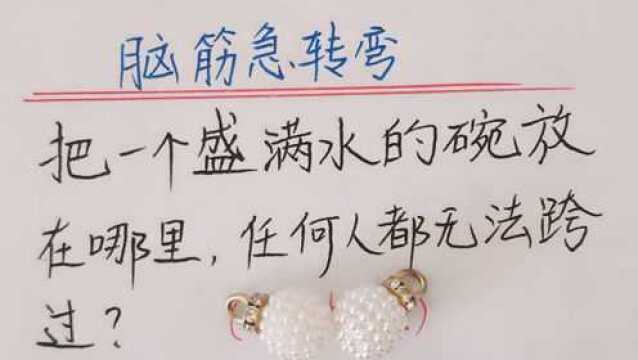 脑筋急转弯
把一个盛满水的碗放
在哪里，任何人都无法跨
过？